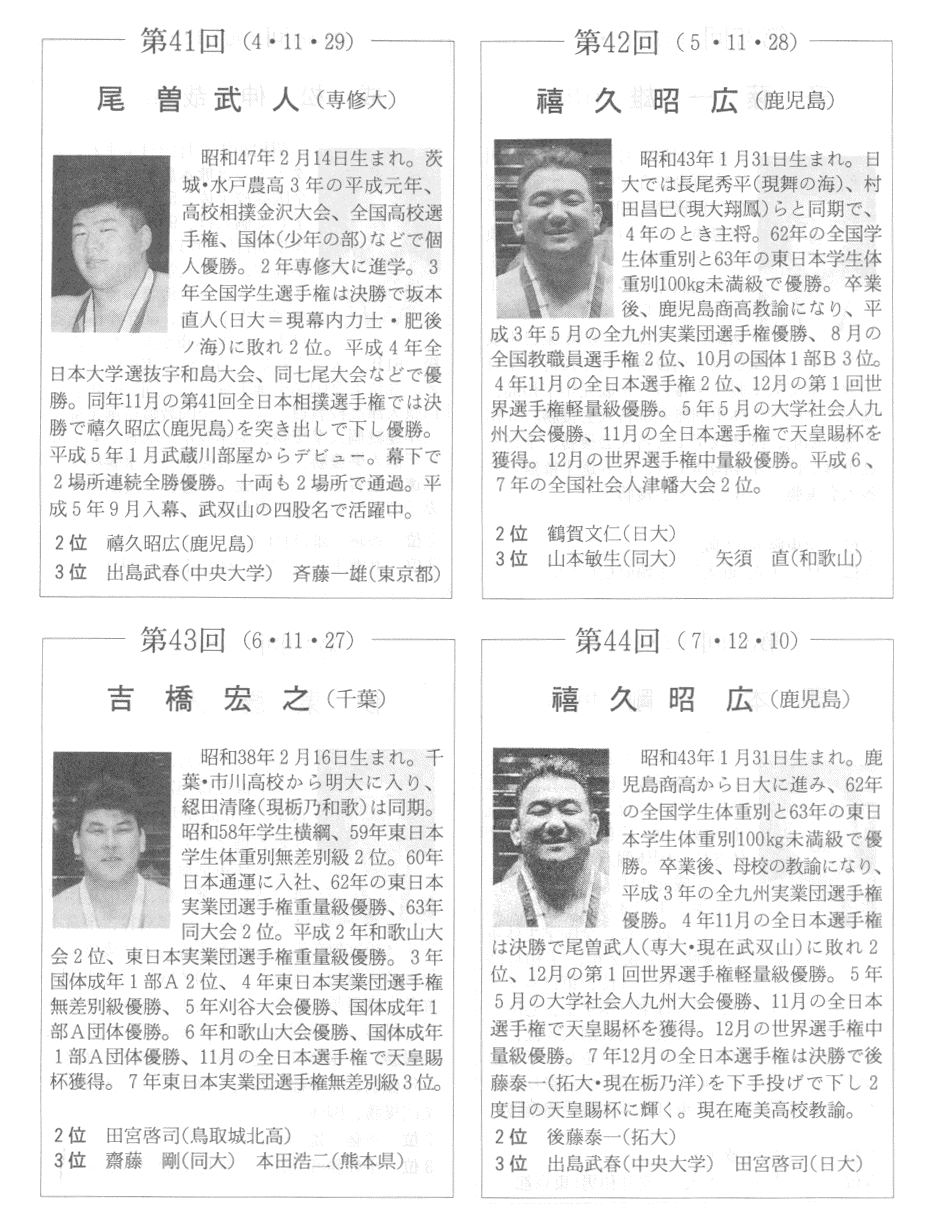 第41回 (4・11・29)
尾曽武人(専修大)
昭和47年2月14日生まれ。茨
城・水戸農高3年の平成元年、
高校相撲金沢大会、全国高校選
手権、国体(少年の部)などで個
人優勝。2年専修大に進学。3
年全国学生選手権は決勝で坂本
直人(日大＝現幕内力士・肥後
ノ海)に敗れ2位。平成4年全
日本大学選抜宇和島大会、同七尾大会などで優
勝。同年11月の第41回全日本相撲選手権では決
勝で禧久昭広(鹿児島)を突き出しで下し優勝。
平成5年1月武蔵川部屋からデビュー。幕下で
2場所連続全勝優勝。十両も2場所で通過。平
成5年9月入幕、武双山の四股名で活躍中。
2位 禧久昭広(鹿児島)
3位 出島武春(中央大学) 斉藤一雄(東京都)
第42回 (5・11・28)
禧久昭広(鹿児島)
昭和43年1月31日生まれ。日
大では長尾秀平(現舞の海)、村
田昌巳(現大翔鳳)らと同期で、
4年のとき主将。62年の全国学
生体重別と63年の東日本学生体
重別100kg未満級で優勝。卒業
後、鹿児島商高教諭になり、平
成3年5月の全九州実業団選手権優勝、8月の
全国教職員選手権2位、10月の国体1部B3位。
4年11月の全日本選手権2位、12月の第1回世
界選手権軽量級優勝。5年5月の大学社会人九
州大会優勝、11月の全日本選手権で天皇賜杯を
獲得。12月の世界選手権中量級優勝。平成6、
7年の全国社会人津幡大会2位。
2位 鶴賀文仁(日大)
3位 山本敏生(同大) 矢須 直(和歌山)
第43回 (6・11・27)
吉橋宏之(千葉)
昭和38年2月16日生まれ。千
葉・市川高校から明大に入り、
綛田清隆(現栃乃和歌)は同期。
昭和58年学生横綱、59年東日本
学生体重別無差別級2位。60年
日本通運に入社、62年の東日本
実業団選手権重量級優勝、63年
同大会2位。平成2年和歌山大
会2位、東日本実業団選手権重量級優勝。3年
国体成年1部A2位、4年東日本実業団選手権
無差別級優勝、5年刈谷大会優勝、国体成年1
部A団体優勝。6年和歌山大会優勝、国体成年
1部A団体優勝、11月の全日本選手権で天皇賜
杯獲得。7年東日本実業団選手権無差別級3位。
2位 田宮啓司(鳥取城北高)
3位 齋藤 剛(同大) 本田浩二(熊本県)
第44回 (7・12・10)
禧久昭広(鹿児島)
昭和43年1月31日生まれ。鹿
児島商高から日大に進み、62年
の全国学生体重別と63年の東日
本学生体重別100kg未満級で優
勝。卒業後、母校の教諭になり、
平成3年の全九州実業団選手権
優勝。4年11月の全日本選手権
は決勝で尾曽武人(専大・現在武双山)に敗れ2
位、12月の第1回世界選手権軽量級優勝。5年
5月の大学社会人九州大会優勝、11月の全日本
選手権で天皇賜杯を獲得。12月の世界選手権中
量級優勝。7年12月の全日本選手権は決勝で後
藤泰一(拓大・現在栃乃洋)を下手投げで下し2
度目の天皇賜杯に輝く。現在庵美高校教諭。
2位 後藤泰一(拓大)
3位 出島武春(中央大学) 田宮啓司(日大)